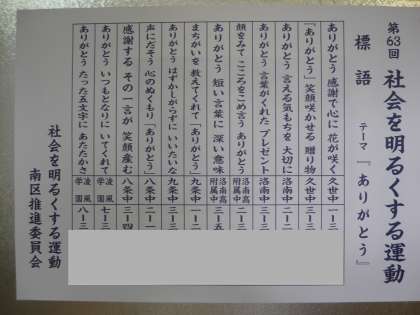 第63回 社会を明るくする運動
標語 テーマ『ありがとう』
ありがとう 感謝で心に 花が咲く 久世中 一ー三
「ありがとう」笑顔咲かせる 贈り物 久世中 三ー三
ありがとう 言える気もちを 大切に 洛南中 二ー二
ありがとう 言葉がくれた プレゼント 洛南中 三ー三
顔をみて こころをこめ言う ありがとう 洛南高附属中 二ー二
ありがとう 短い言葉に 深い意味 洛南高附属中 三ー五
まちがいを 教えてくれて 「ありがとう」 九条中 三ー三
ありがとう はずかしがらずに いいたいな 九条中 一ー二
声にだそう 心のぬくもり 「ありがとう」 八条中 二ー一
感謝する その一言が 笑顔産む 八条中 三ー四
ありがとう いつもとなりに いてくれて 凌風学園 七ー三
ありがとう たった五文字に あたたかさ 凌風学園 八ー三
社会を明るくする運動
南区推進委員会